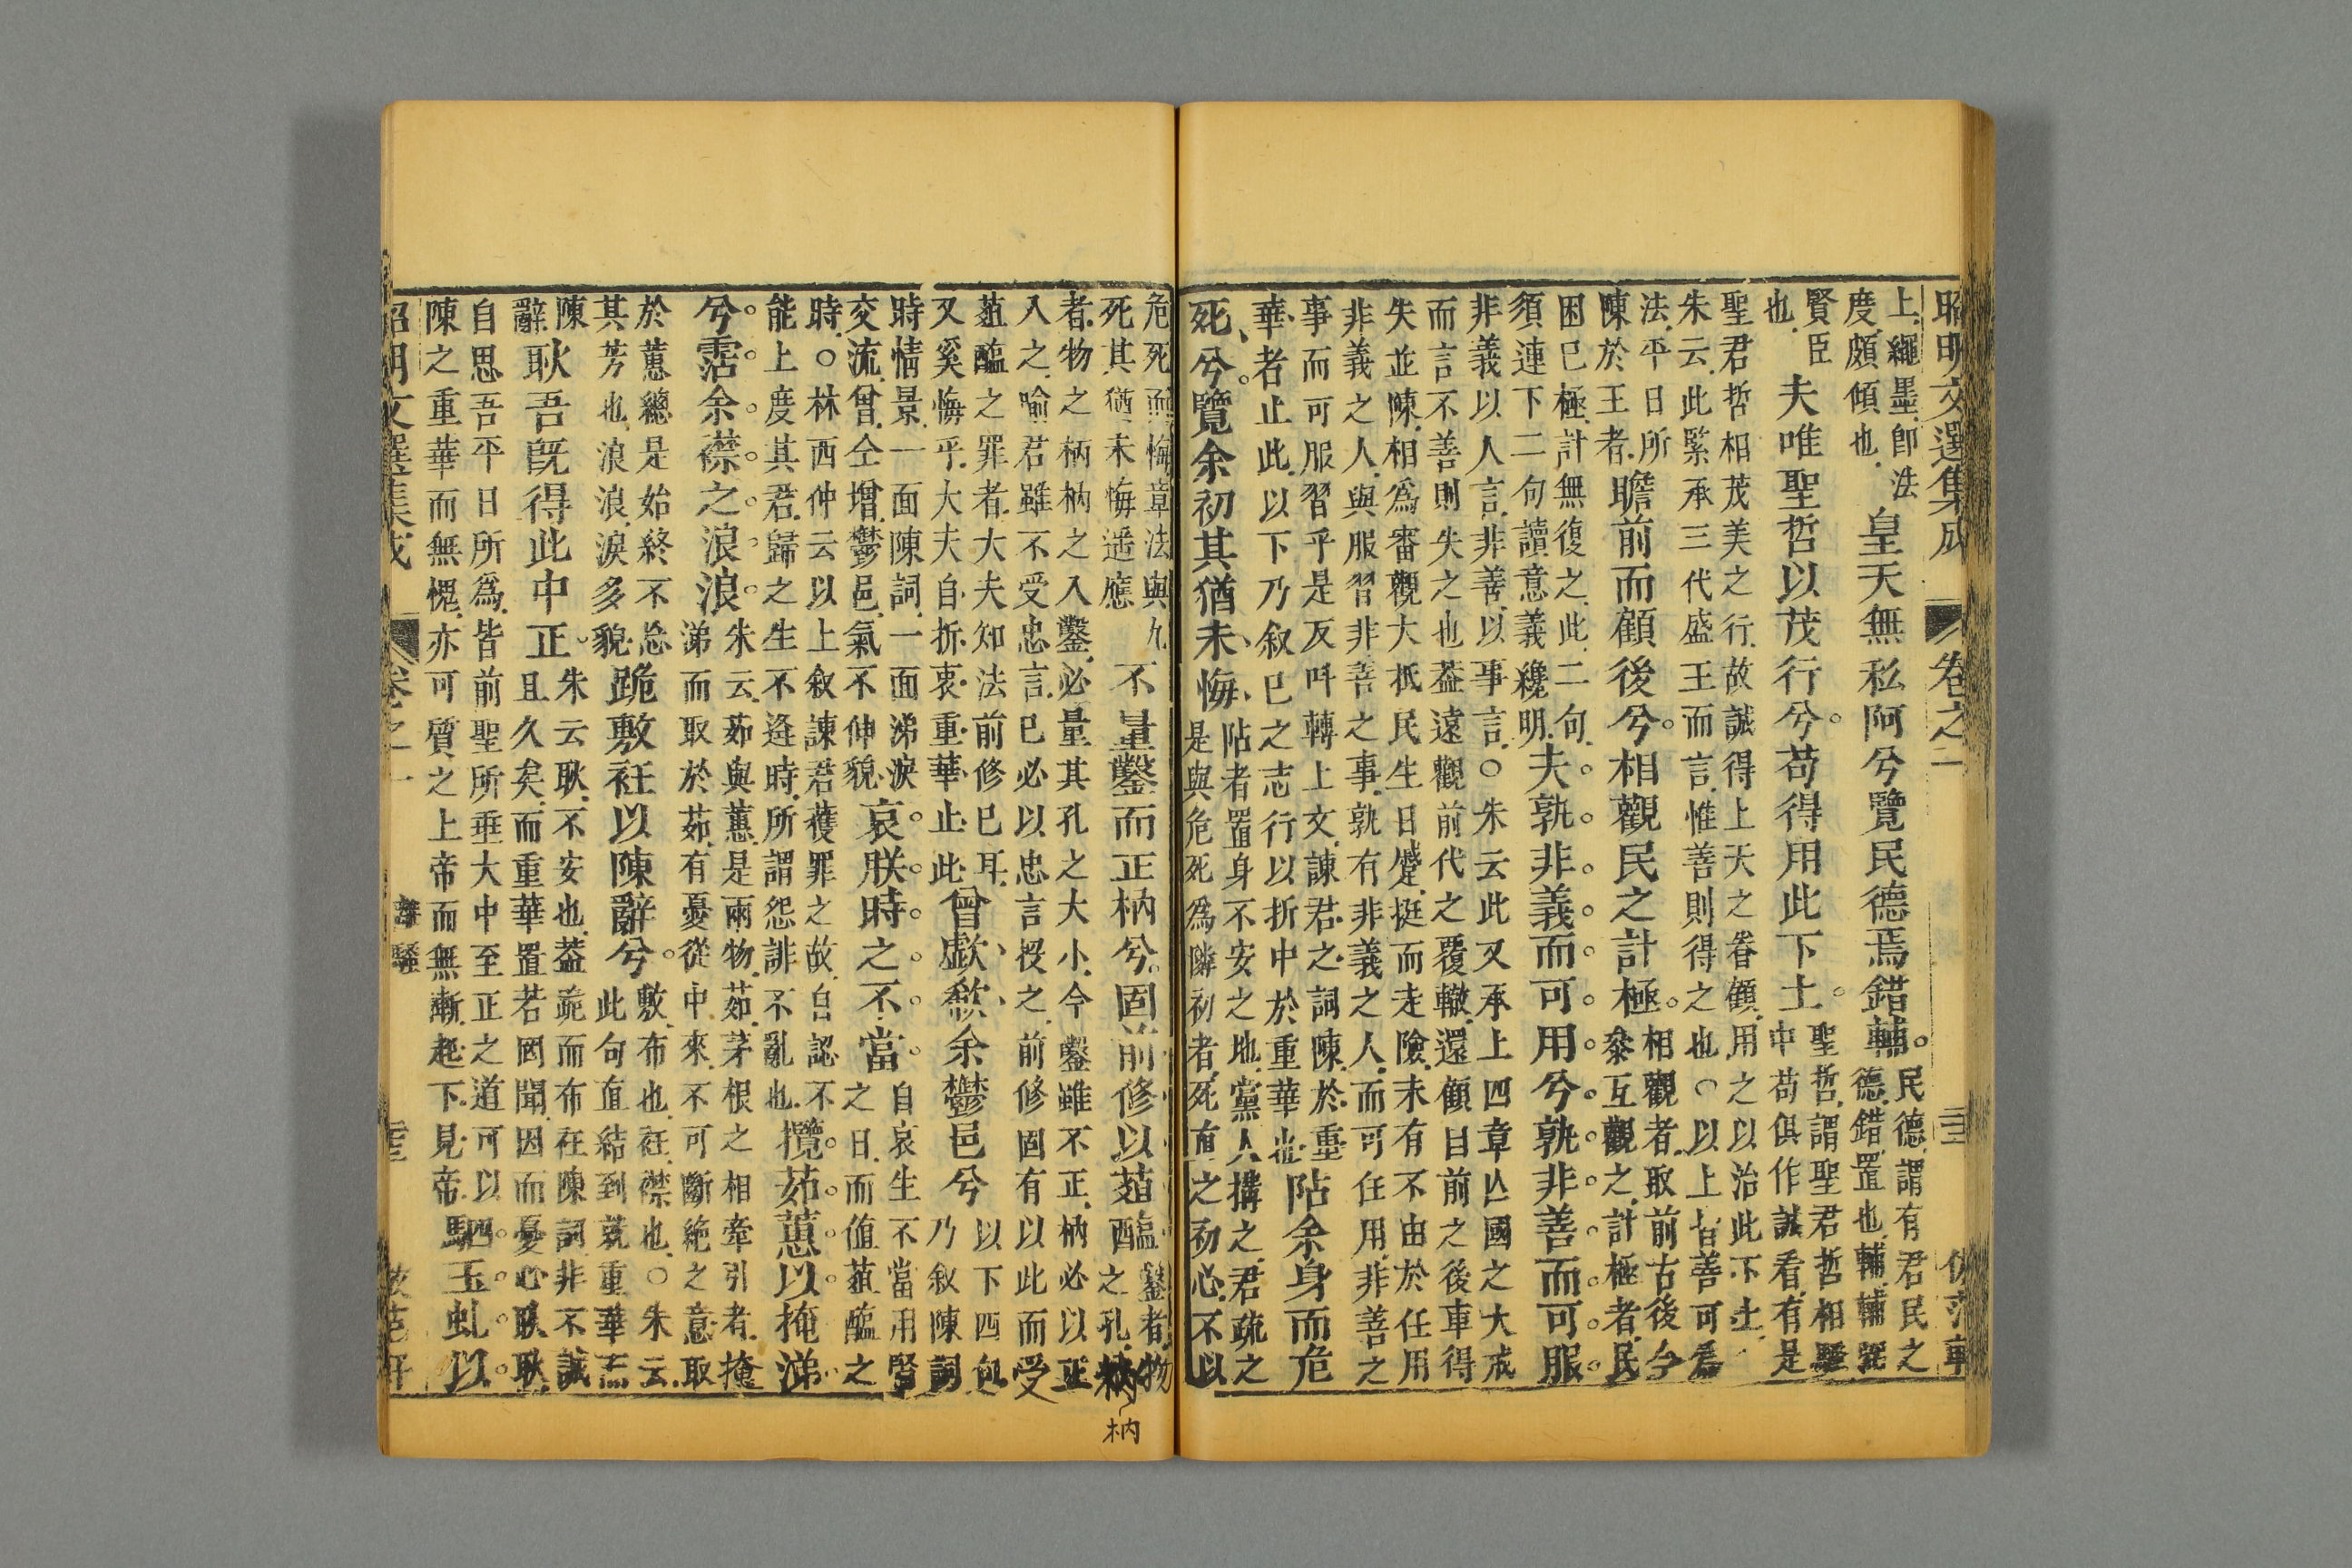 昭明文選集成 卷之二
上繩墨卽法
度頗傾也
皇天無私阿兮覽民德焉錯輔
民德謂有君民之
德錯置也輔輔佐
賢臣
也
夫唯聖哲以茂行兮苟得用此下土
聖哲謂聖君哲相
中苟俱作誠看有是
聖君哲相茂美之行故誠得上天之眷顧用之以治此下土
朱云此緊承三代盛王而言惟善則得之也〇以上皆善可爲
法平日所
陳於王者
瞻前而顧後兮相觀民之計極
相觀者取前古後今
叅互觀之計極者民
困已極計無復之此二句
須連下二句讀意義纔明
夫孰非義而可用兮孰非善而可服
非義以人言非善以事言〇朱云此又承上四章亾國之大戒
而言不善則失之也葢遠觀前代之覆轍還顧目前之後車得
失並陳相爲審觀大抵民生日蹙挺而走險未有不由於任用
非義之人與服習非善之事孰有非義之人而可任用非善之
事而可服習乎是反叫轉上文諫君之詞陳於重
華者止此以下乃叙巳之志行以折中於重華也
阽余身而危
死兮覽余初其猶未悔
阽者置身不安之地黨人搆之君疏之
是與危死爲隣初者死直之初心不以
危死而悔章法與九
死其猶未悔遥應
不量鑿而正枘兮固前修以菹醢
鑿者物
之孔枘
枘
者物之柄枘之入鑿必量其孔之大小今鑿雖不正枘必以正
入之喻君雖不受忠言巳必以忠言投之前修固有以此而受
菹醢之罪者大夫知法前修巳耳
又奚悔乎大夫自折衷重華止此
曾歔欷余鬱邑兮
以下四句
乃叙陳詞
時情景一面陳詞一面涕淚
交流曾仝增鬱邑氣不伸貌
哀朕時之不當
自哀生不當用賢
之日而值菹醢之
時〇林西仲云以上叙諫君獲罪之故自認不
能上度其君歸之生不逢時所謂怨誹不亂也
攬茹蕙以掩涕
兮霑余襟之浪浪
朱云茹與蕙是兩物茹茅根之相牽引者掩
涕而取於茹有憂從中來不可斷絶之意取
於蕙纕是始終不忘
其芳也浪浪淚多貌
跪敷衽以陳辭兮
敷布也衽襟也〇朱云
此句直結到就重華而
陳
辭
耿吾旣得此中正
朱云耿不安也葢跪而布衽陳詞非不誠
且久矣而重華置若罔聞因而憂心耿耿
自思吾平日所爲皆前聖所垂大中至正之道可以
陳之重華而無愧亦可質之上帝而無漸起下見帝
駟玉虬以
昭明文選集成 卷之二 離騷